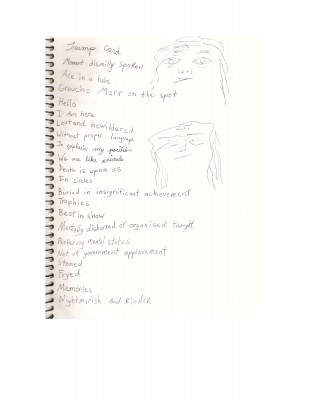 Trump Card
Moment dismilly spoken
Ace in a hole
Groucho Marx on the spot
Hello
I Am here
Lost and bewildered
Without proper language
To explain my position
We are like animals
Death is upon us
In circles
Buried in insignificant achievement
Trophies
Best in show
Mentally disbarred of organised thought
mental states
Not of government approvement
Stoned
Fryed
Memories
Nightmarish and Kinder